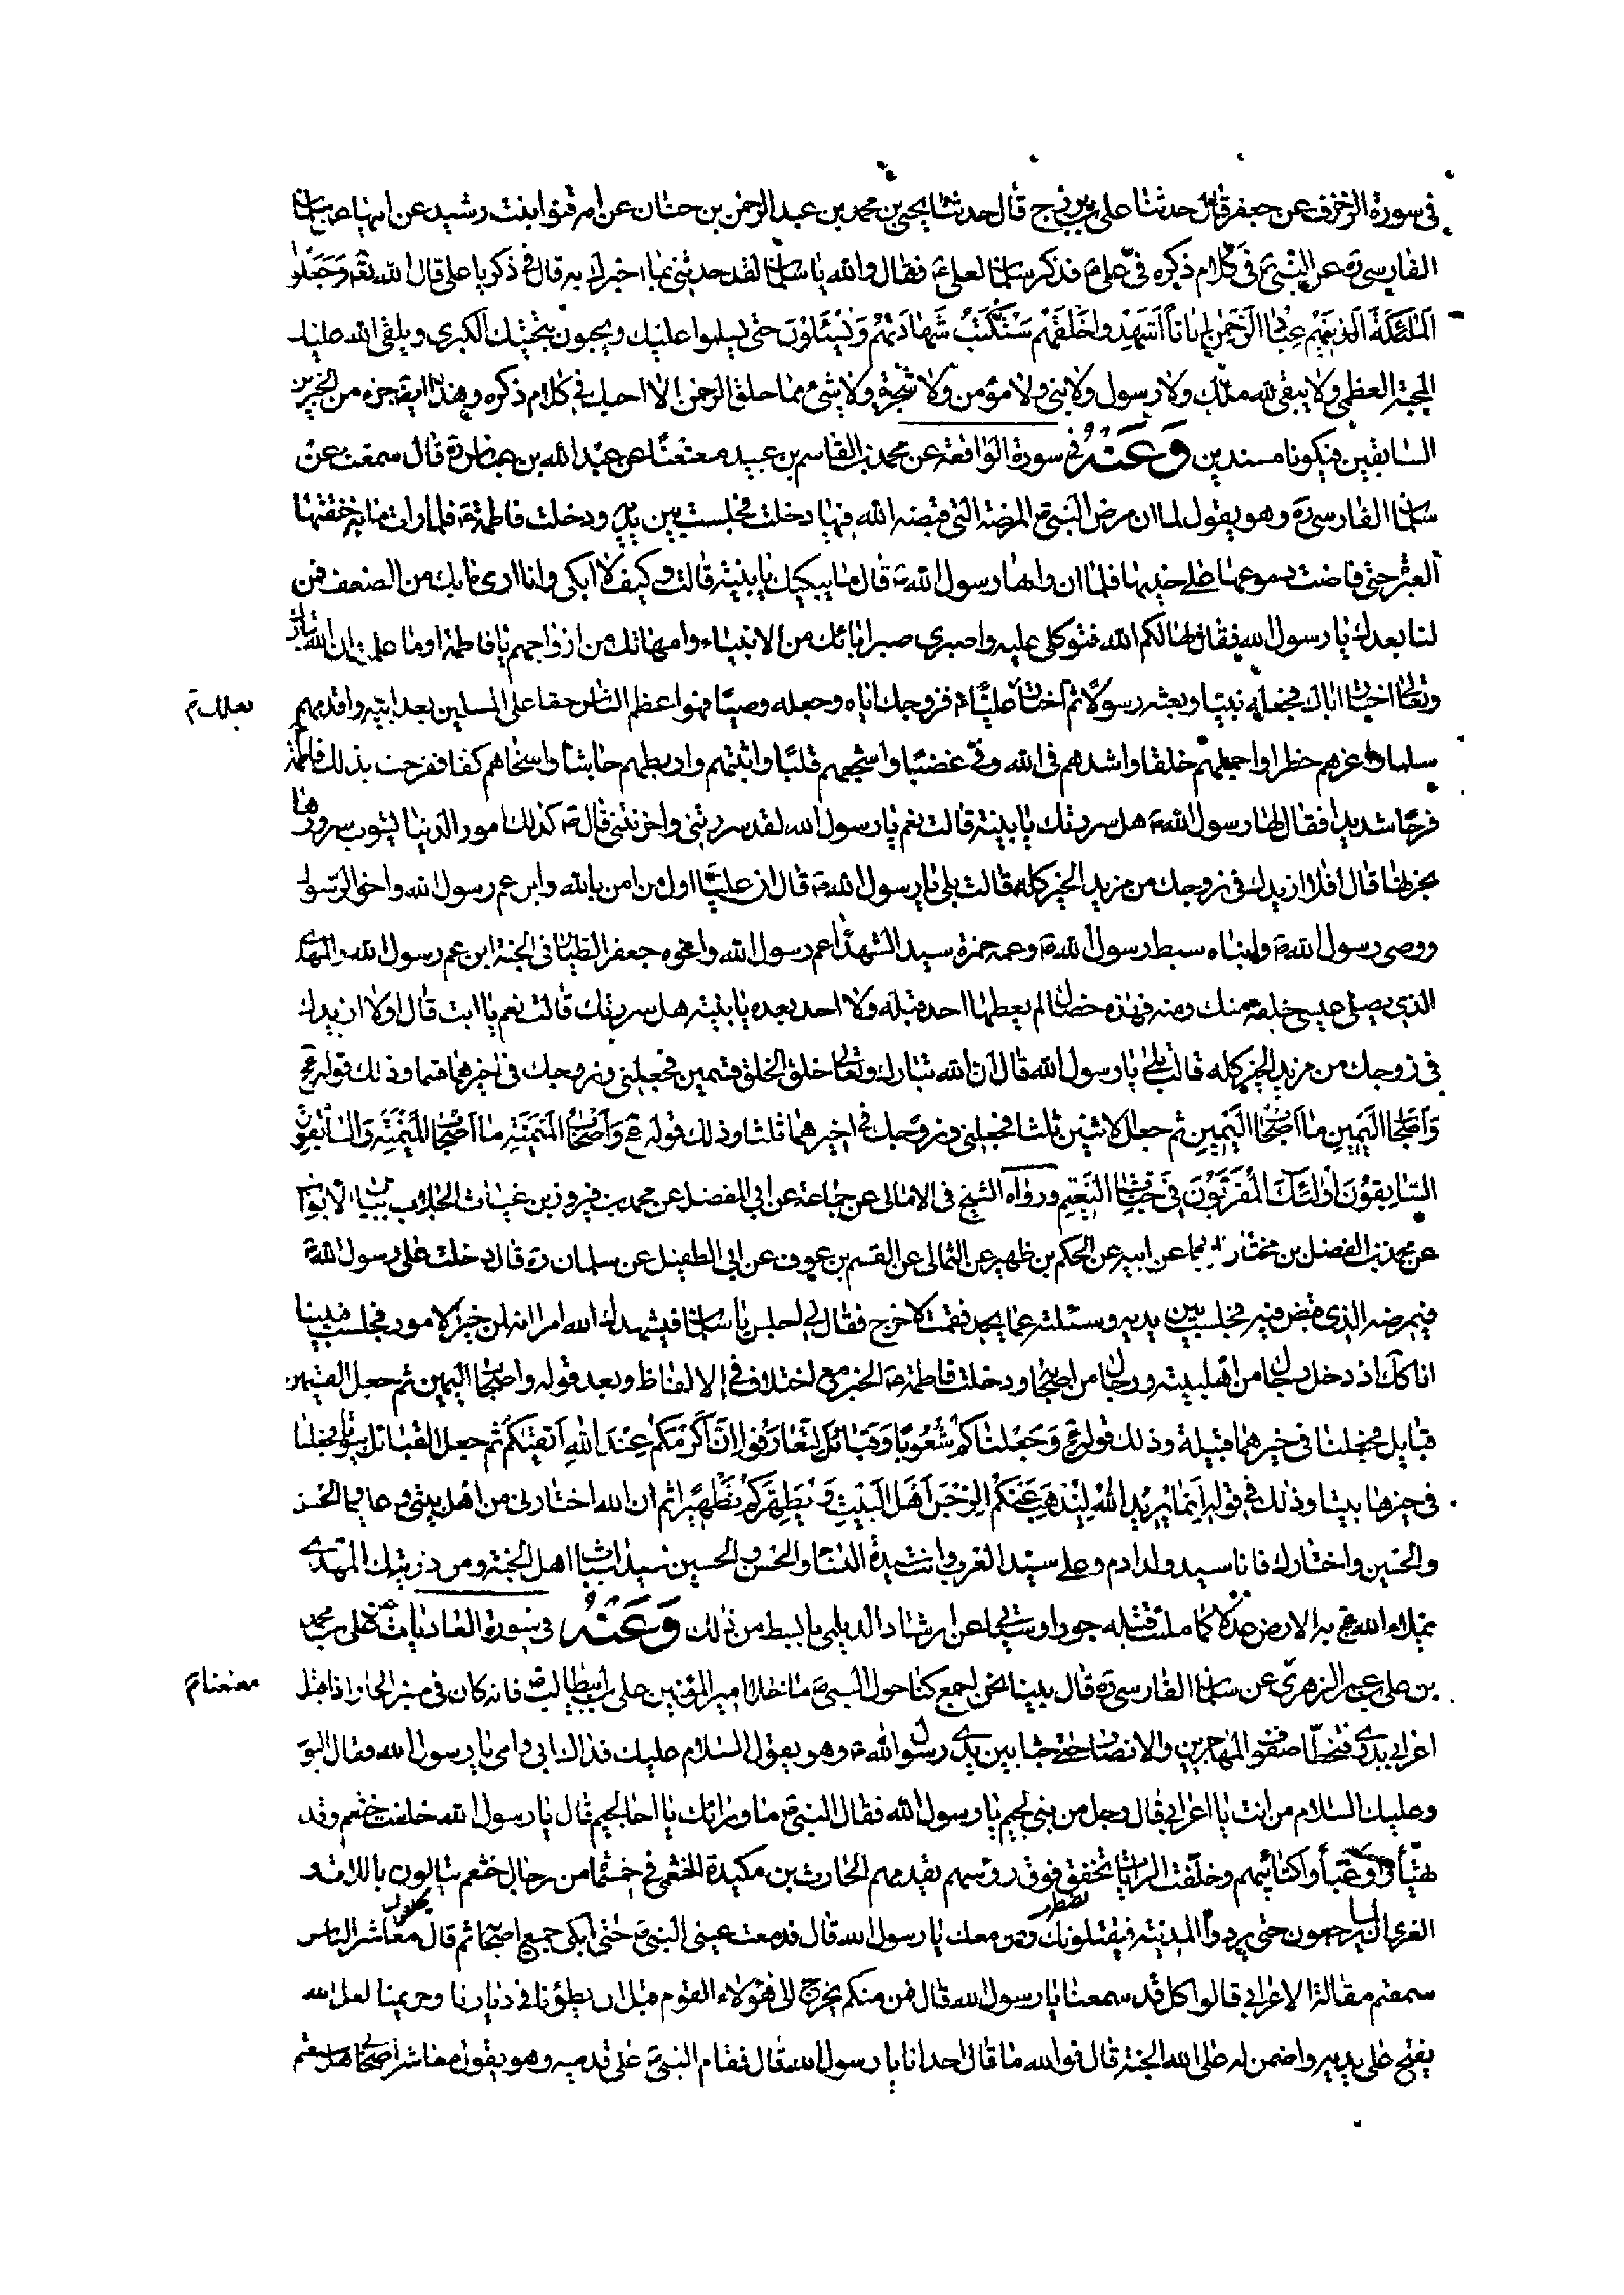 في سورة الزخرف عن جعفر قال حدثنا علي بن بزرج قال حدثنا يحيى بن محمد بن عبد الرحمن بن حنان عن ام قنوا بنت رشيد عن ابيها سلمان
الفارسي ره عن النبي ص في كلام ذكره في علي ع فذكر سلمان لعلي ع فقال والله يا سلمان لقد حدثني بما اخبرك به قال في ذكر يا علي قال الله تعالى وَجَعَلُوا
الْمَلٰئِكَةَ الَّذينَ هُمْ عِبادُ الرَّحْمٰنِ إِناثاً أَشَهِدُوا خَلْقَهُمْ سَتُكْتَبُ شَهادَتُهُمْ وَيُسْئَلُونَ حتى ليلبوا عليك ويحبون بمحبتك الكبرى ويلقى الله عليك
المحبة العظمى ولا يبقى لله ملك ولا رسول ولا نبي ولا مؤمن ولا شجرة ولا شيء مما خلق الرحمن الا احبك في كلام ذكره وهذا ايضا جزء من الخبرين
السابقين فيكونا مسندين وَعَنْهُ في سورة الواقعة عن محمد بن القاسم بن عبيد معنعنا عن عبد الله بن عباس ره قال سمعت عن
سلمان الفارسي ره وهو يقول لما ان مرض النبي ص المرضة التي قبضه الله فيها دخلت فجلست بين يديه ودخلت فاطمة ع فلما رات ما به خنقتها
العبرة حتى فاضت دموعها على خديها فلما ان راها رسول الله ص قال ما يبكيك يا بنية قالت وكيف لا ابكي وانا ارى ما بك من الضعف فمن
لنا بعدك يا رسول الله فقال لها لكم الله فتوكلي عليه واصبري صبر ابائك من الانبياء وامهاتك من ازواجهم يا فاطمة اوما علمت ان الله تبارك
وتعالى اختار اباك فجعله نبيا وبعثه رسولا ثم اختار عليا ع فزوجك اياه وجعله وصيا فهو اعظم الناس حقا على المسلمين بعد ابيه واقدمهم
بعلك م
سلما واعزهم خطرا واجملهم خلقا واشدهم في الله وفي غضبا واشجعهم قلبا واثبتهم واربطهم جاشا واسخاهم كفا ففرحت بذلك فاطمة
فرحا شديدا فقال لها رسول الله ص هل سررتك يا بنية قالت نعم يا رسول الله لقد سررتني واحزنتني قال ص كذلك امور الدنيا يشوب سرورها
بحزنها قال افلا ازيدك في زوجك من مزيد الخير كله قالت بلى يا رسول الله ص قال ان عليا اول من امن بالله وابن عم رسول الله واخو الرسول
ووصي رسول الله ص وابناه سبط رسول الله ص وعمه حمزة سيد الشهداء عم رسول الله واخوه جعفر الطيار في الجنة ابن عم رسول الله والمهدي
الذي يصلي عيسى خلفه منك ومنه فهذه خصال لم يعطها احد قبله ولا احد بعده يا بنية هل سررتك قالت نعم يا ابت قال اولا ازيدك
في زوجك من مزيد الخير كله قالت بلى يا رسول الله قال ان الله تبارك وتعالى خلق الخلق قسمين فجعلني وزوجك في اخيرهما قسما وذلك قوله عج
وَأَصْحابُ الْيَمِينِ ما أَصْحابُ الْيَمِينِ ثم جعل الاثنين ثلثا فجعلني وزوجك في اخيرهما ثلثا وذلك قوله عج وَأَصْحابُ الْمَيْمَنَةِ ما أَصْحابُ الْمَيْمَنَةِ وَالسَّابِقُونَ
السَّابِقُونَ أُولٰئِكَ الْمُقَرَّبُونَ فِي جَنَّاتِ النَّعِيمِ ورواه الشيخ في الامالي عن جماعة عن ابي المفضل عن محمد بن فيروز بن غياث الجلاب بباب الابواب
عن محمد بن الفضل بن مختار عن ابيه عن الحكم بن ظهير عن الثمالي عن القسم بن عوف عن ابي الطفيل عن سلمان ره قال دخلت على رسول الله ص
في مرضه الذي قبض فيه فجلست بين يديه وسئلته عما يجد فقمت لاخرج فقال لي اجلس يا سلمان فيشهدك الله امرا انه لمن خير الامور فجلست فبينا
انا كك اذ دخل رجال من اهل بيته ورجال من اصحابه ودخلت فاطمة ع الخبر مع اختلاف في الالفاظ وبعد قوله واصحاب اليمين ثم جعل القسمين
قبايل فجعلنا في خيرهما قبيلة وذلك قوله عج وَجَعَلْناكُمْ شُعُوباً وَقَبائِلَ لِتَعارَفُوا إِنَّ أَكْرَمَكُمْ عِنْدَ اللهِ أَتْقيكُمْ ثم جعل القبائل بيوتا فجعلنا
في خيرها بيتا وذلك في قوله إِنَّما يُرِيدُ اللهُ لِيُذْهِبَ عَنْكُمُ الرِّجْسَ أَهْلَ الْبَيْتِ وَيُطَهِّرَكُمْ تَطْهِيراً ثم ان الله اختارني من اهل بيتي وعليا والحسن
والحسين واختارك فانا سيد ولد ادم وعلي سيد العرب وانت سيدة النساء والحسن والحسين سيدا شباب اهل الجنة ومن ذريتك المهدي
يملاء الله عج به الارض عدلا كما ملئت قبله جورا وسيأتي عن ارشاد الديلمي بابسط من ذلك وَعَنْهُ في سورة العاديات عن علي بن محمد
بن علي بن عمر الزهري عن سلمان الفارسي ره قال بينا نحن اجمع كنا حول النبي ص ما خلا امير المؤمنين علي بن ابيطالب ص فانه كان في منبر الحار اذ اقبل
معنعنا م
اعرابي بدوي فتخطا صفوف المهاجرين والانصار حتى جثا بين يدي رسول الله ص وهو يقول السلام عليك فداك ابي وامي يا رسول الله فقال النبي
وعليك السلام من انت يا اعرابي قال رجل من بني لجيم يا رسول الله فقال النبي ص ما وراءك يا اخا لجيم قال يا رسول الله خلفت خثعم وقد
تهيأوا وعبأوا كتائبهم وخلفت الرايات تخفق فوق رؤسهم يقدمهم الحارث بن مكيدة الخثعمي في خمسمائة من رجال خثعم يتالون باللات و
العزى ان لا يرجعون حتى يردوا المدينة فيقتلونك ومن معك يا رسول الله قال فدمعت عيني النبي ص حتى ابكى جميع اصحابه ثم قال معاشر الناس
سمعتم مقالة الاعرابي قالوا كل قد سمعنا يا رسول الله قال فمن منكم يخرج الى هؤلاء القوم قبل ان يطؤنا في ديارنا وحريمنا لعل الله
يفتح على يديه واضمن له على الله الجنة قال فوالله ما قال احد انا يا رسول الله قال فقام النبي ص على قدميه وهو يقول معاشر اصحابي هل سمعتم